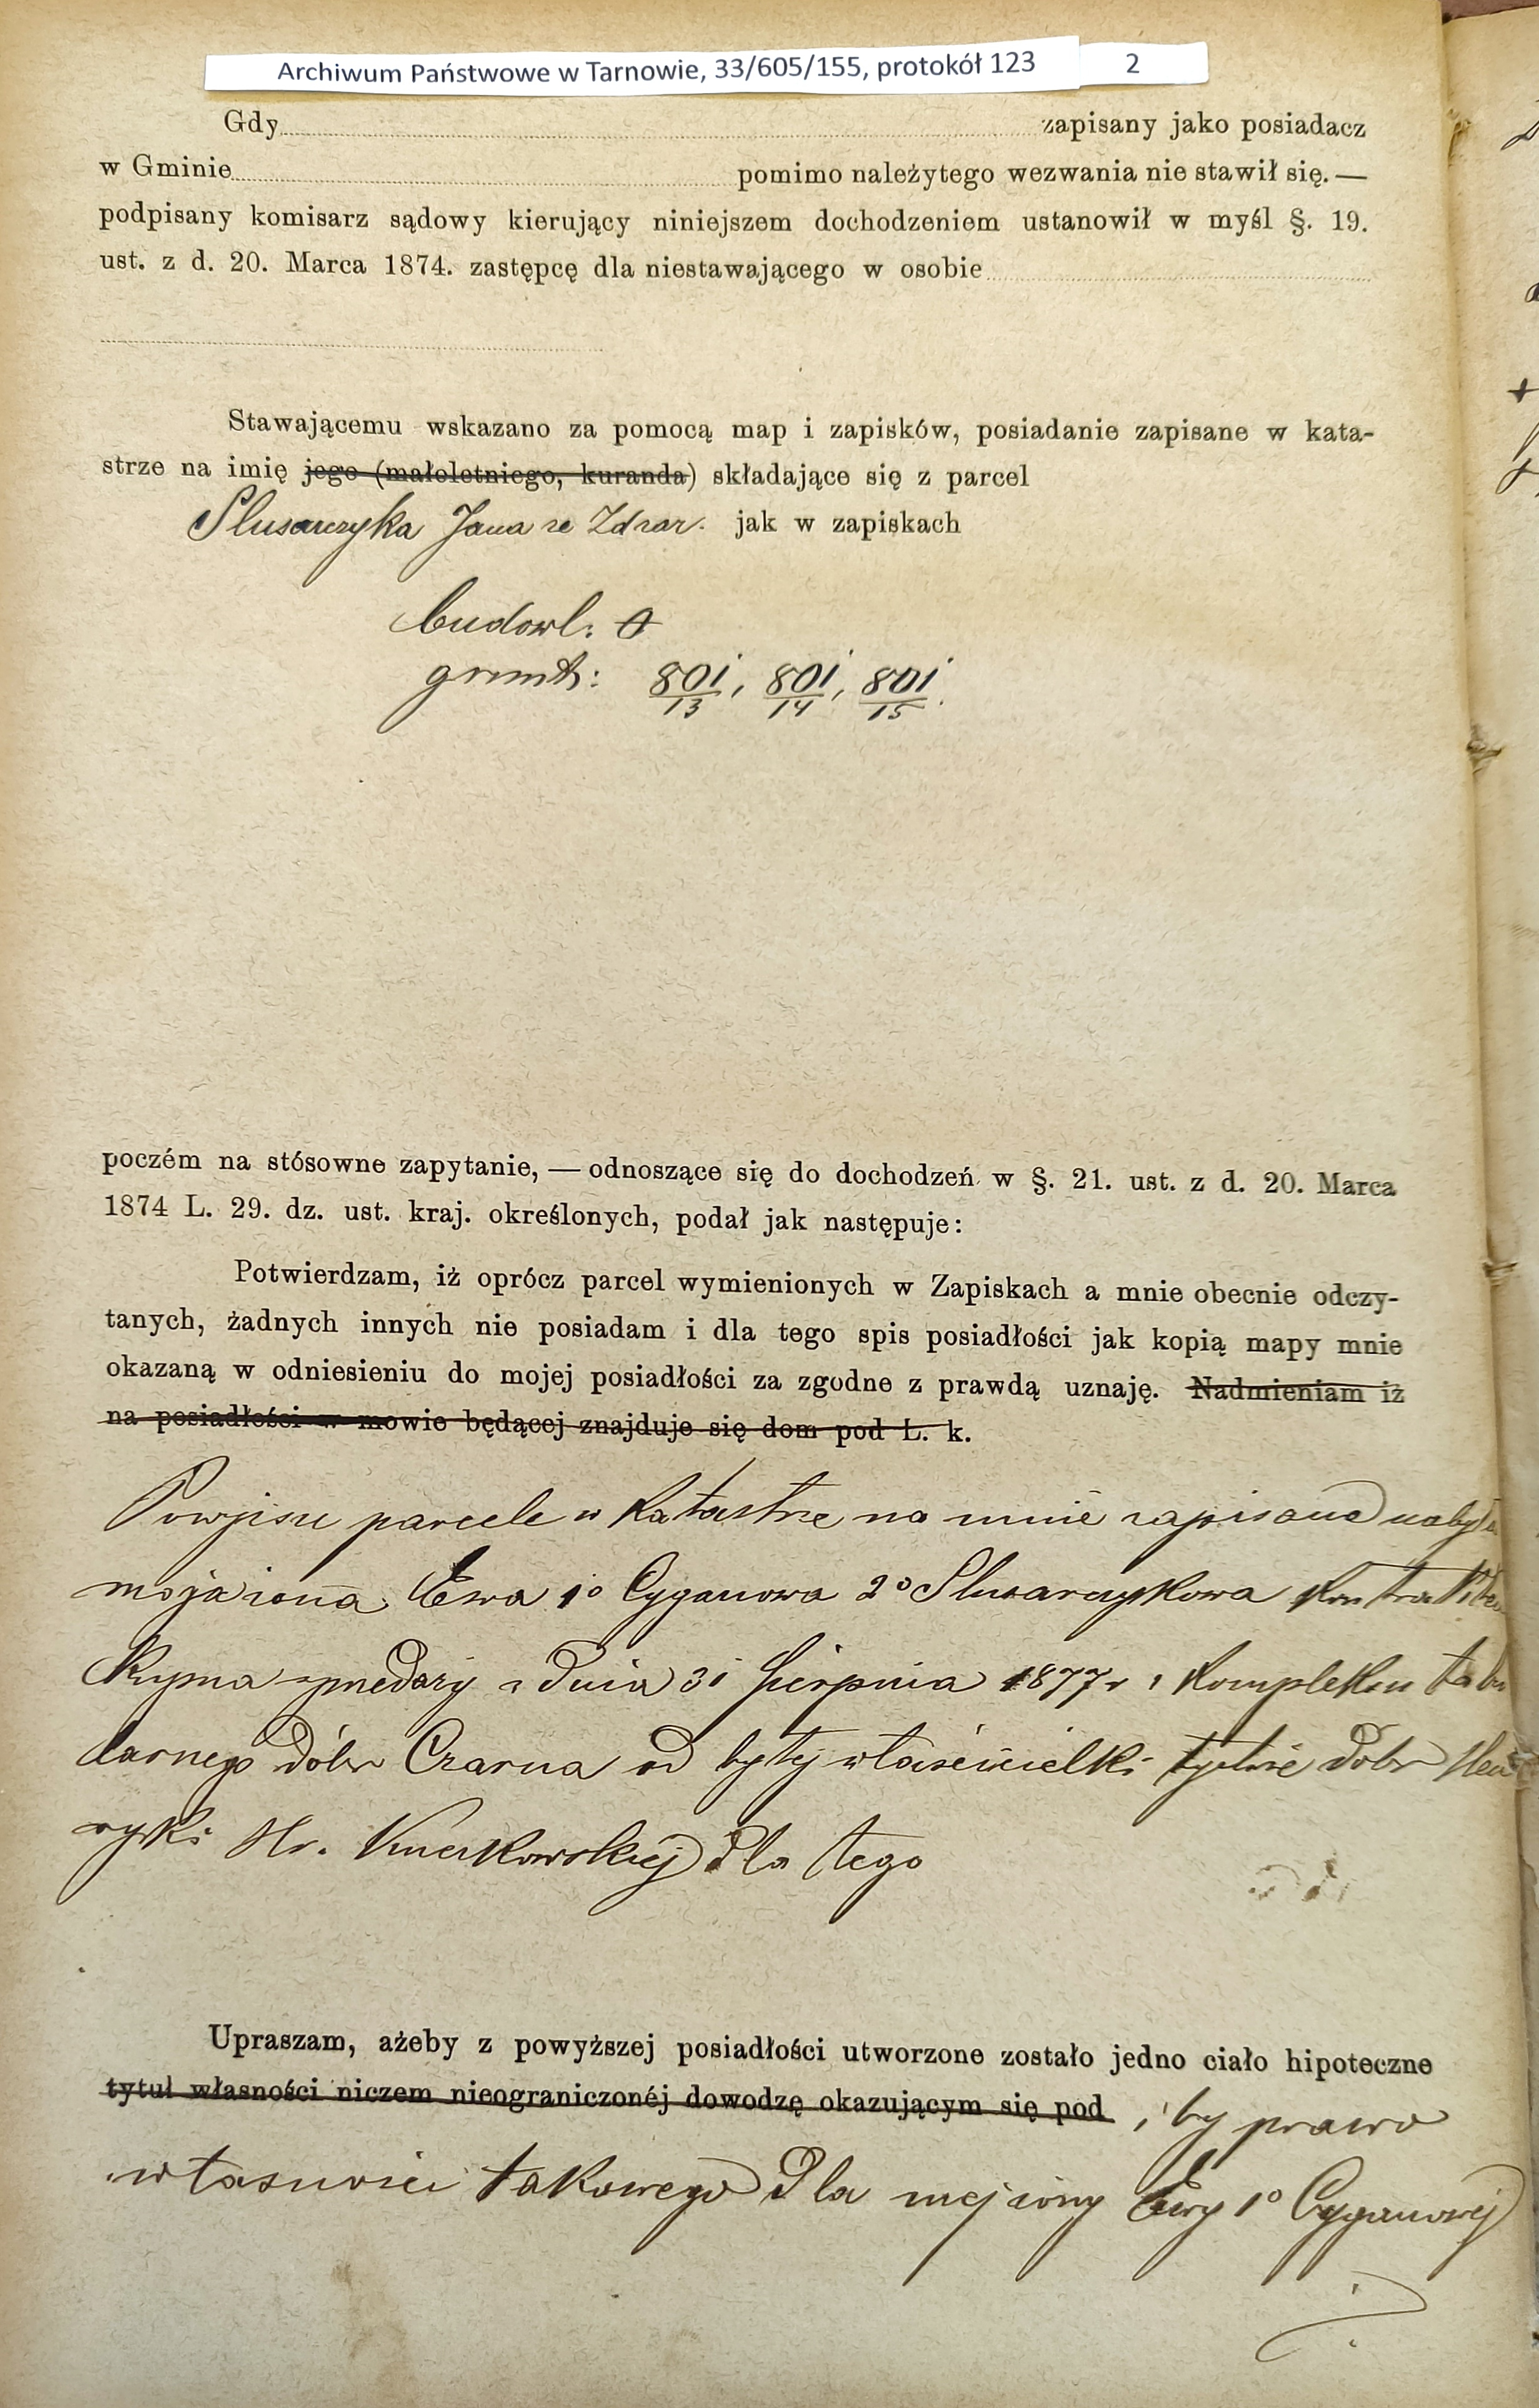 Archiwum Państwowe w Tarnowie, 33/605/155, protokół 123 2
Gdy zapisany jako posiadacz
w Gminie pomimo należytego wezwania nie stawił się. —
podpisany komisarz sądowy kierujący niniejszem dochodzeniem ustanowił w myśl §. 19.
ust. z d. 20. Marca 1874. zastępcę dla niestawającego w osobie
Stawającemu wskazano za pomocą map i zapisków, posiadanie zapisane w kata-
strze na imię jego (małoletniego, kuranda) składające się z parcel
Slusarczyka Jana ze Zdzar. jak w zapiskach
budowl: 0
grunt: 801/13, 801/14, 801/15.
poczém na stósowne zapytanie, — odnoszące się do dochodzeń w §. 21. ust. z d. 20. Marca
1874 L. 29. dz. ust. kraj. określonych, podał jak następuje:
Potwierdzam, iż oprócz parcel wymienionych w Zapiskach a mnie obecnie odczy-
tanych, żadnych innych nie posiadam i dla tego spis posiadłości jak kopią mapy mnie
okazaną w odniesieniu do mojej posiadłości za zgodne z prawdą uznaję. Nadmieniam iż
na posiadłości w mowie będącej znajduje się dom pod L. k.
Powyższe parcele w katastrze na mnie zapisane nabyła
moja żona Ewa 1o Cyganowa 2o Slusarczykowa kontraktem
kupna sprzedaży z dnia 31 Sierpnia 1877 r z kompleksu tabu
larnego dóbr Czarna od byłej właścicielki tychże dóbr Hen
ryki Hr. dla tego
Upraszam, ażeby z powyższej posiadłości utworzone zostało jedno ciało hipoteczne
tytuł własności niczem nieograniczonéj dowodzę okazującym się pod i by prawo
własności takowego dla mej żony Ewy 1o Cyganowej